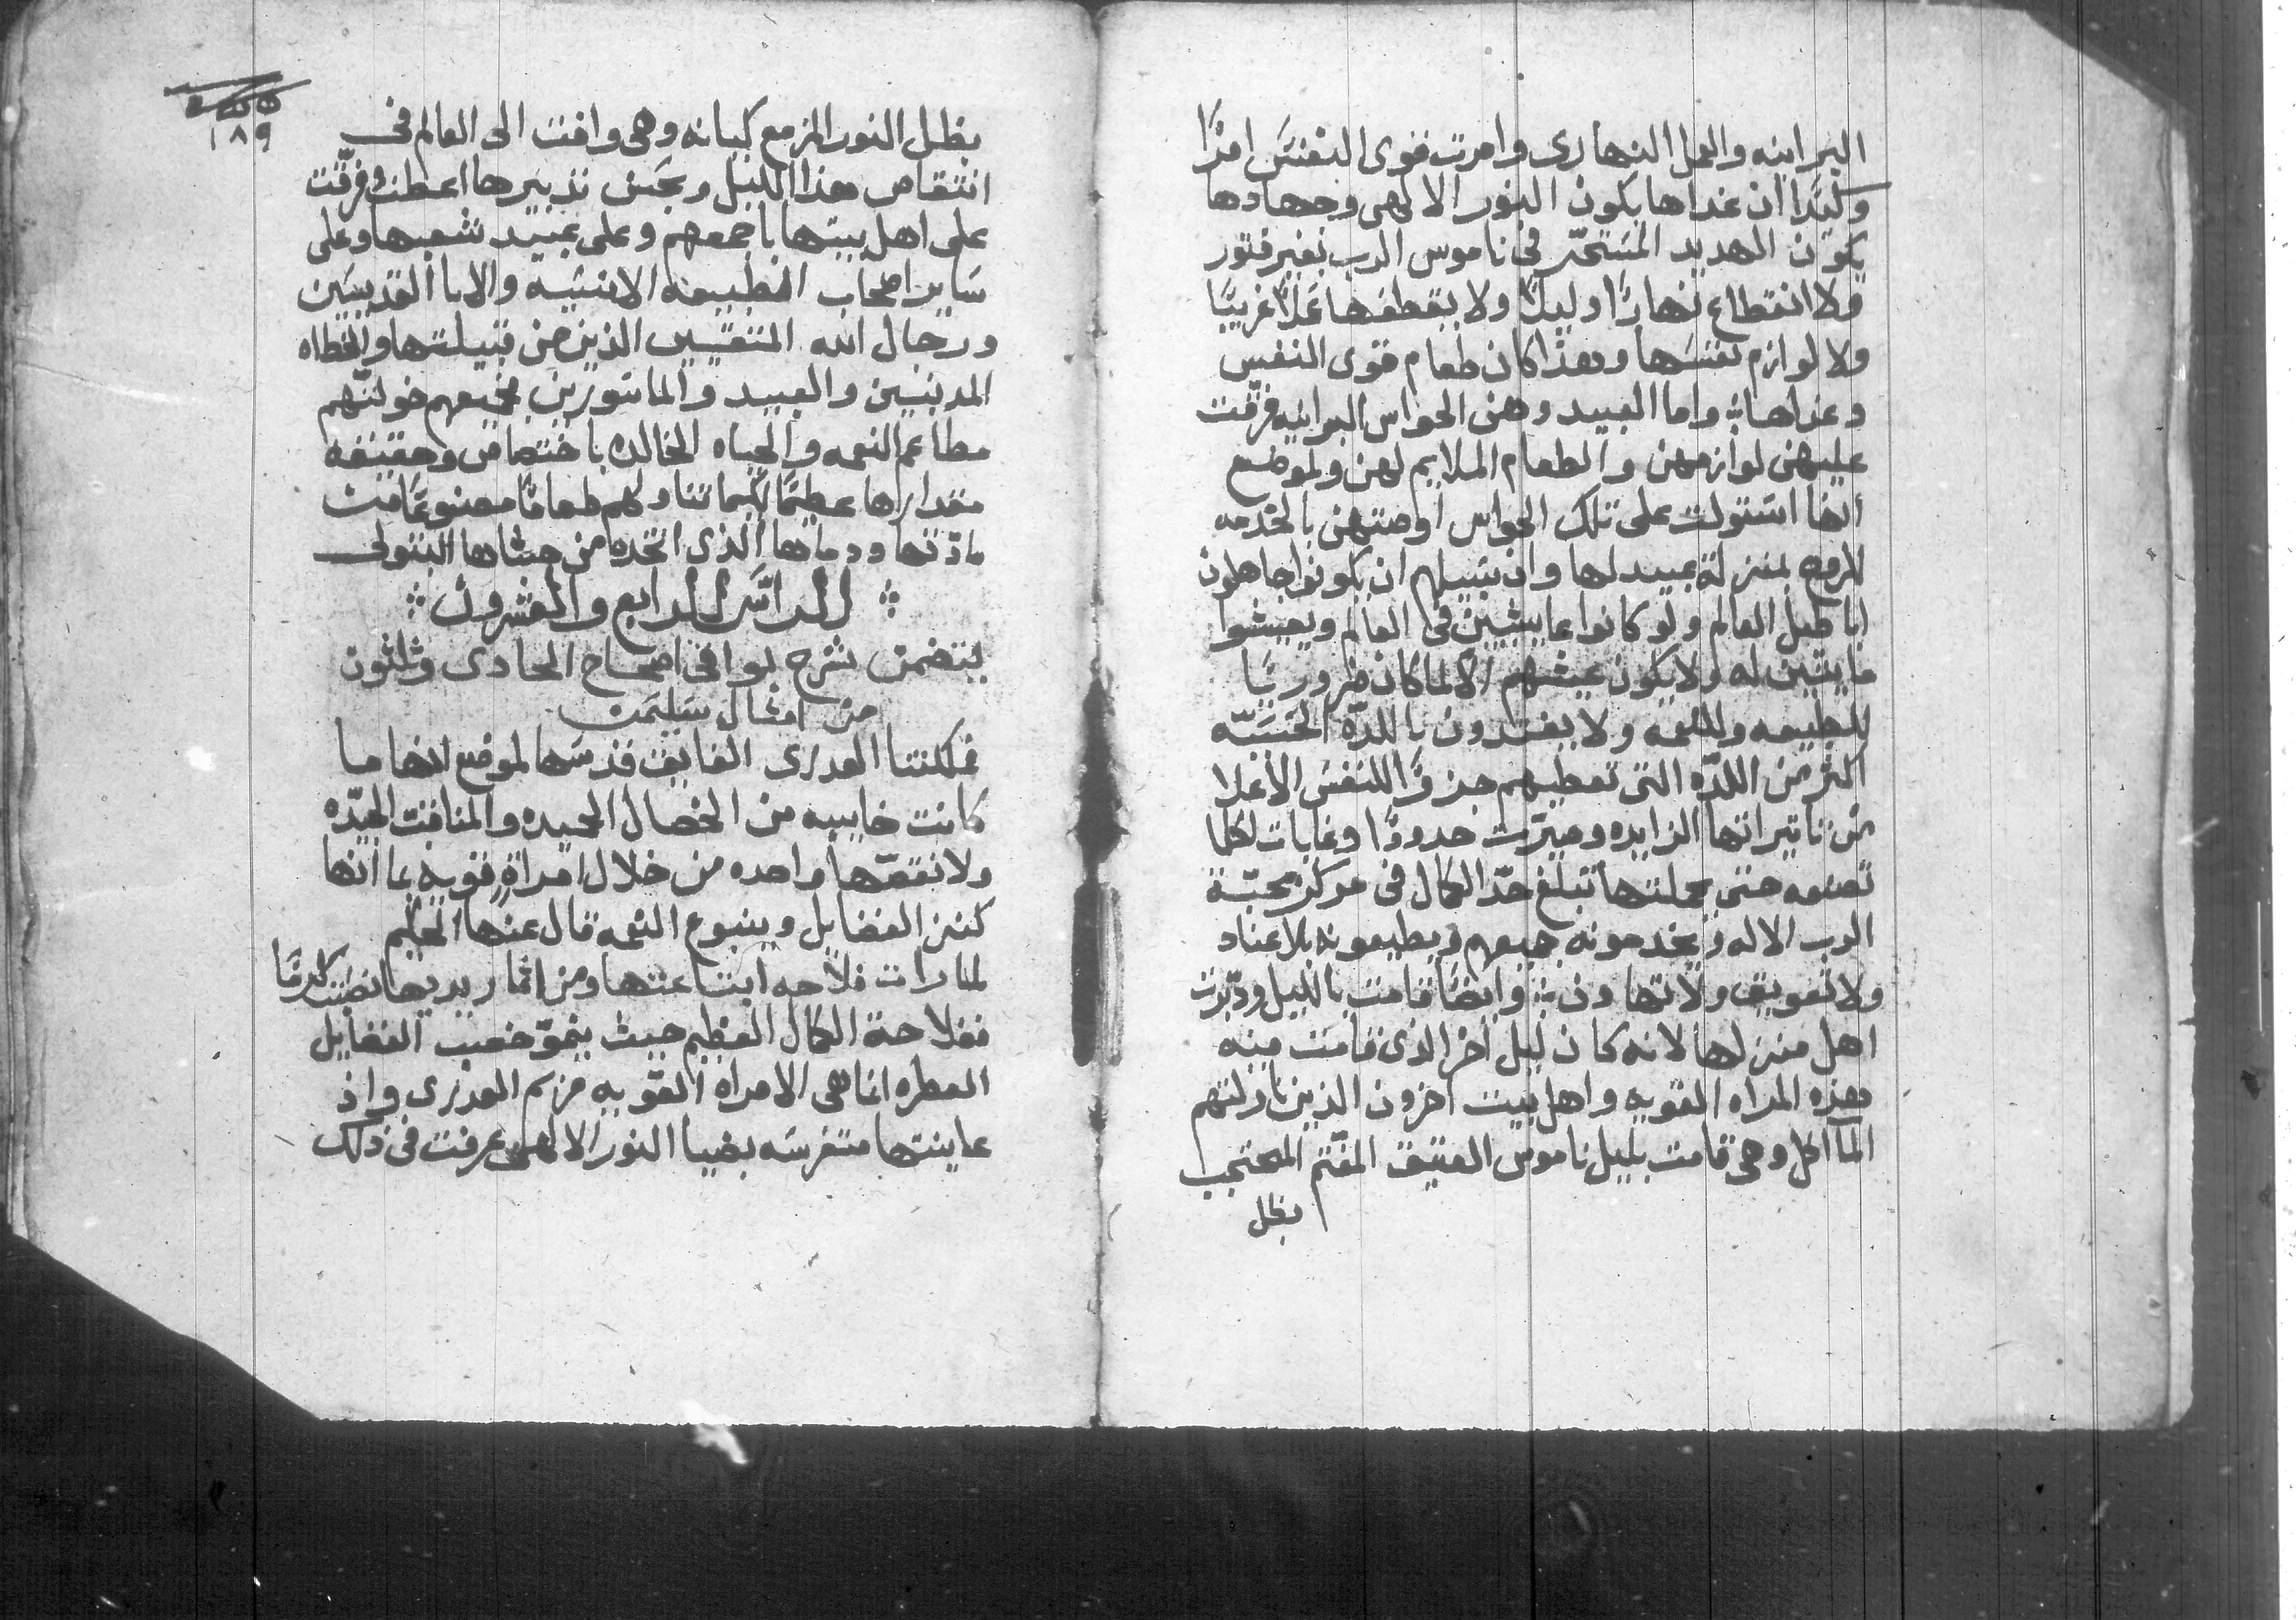 البرانيه والعمل النهارى وامرت قوى النفس امرًا
وكيدًا ان غداها يكون النور الالهى وجهادها
يكون الهديد المستحرّ فى ناموس الرب بغير فتور
ولا انقطاع نهارًا وليلًا ولا يقطعها عملًا غريبًا
ولا لوازم نفسها وهذا كان طعام قوى النفس
وغداها واما العبيد وهن الحواس البرانيه فرّقت
عليهن لوازمهن والطعام الملايم لهن ولموضع
انها استولت على تلك الحواس اوصتهن بالخدمه
للروح بمنزلة عبيد لها وان سبيلهم ان يكونوا جاهلون
اباطيل العالم ولو كانوا عايشين فى العالم ويعيشوا
مايتين له ولا يكون عيشهم الا لما كان ضروريًا
للطبيعه وللنعمه ولا يغتدون باللدّه الحسيّه
اكثر من اللدّه التى تعطيهم جزوًا للنفس الاعلا
من تاتيراتها الزايده وميزّت حدودًا وغايات لكلما
تصنعه حتى بجملتها تبلغ حدّ الكمال فى مركز محبّة
الرب الاله ويخدمونه جميعهم ويطيعونه بلا عناد
ولا تعويق ولا تهاون وايضًا قامت بالليل ودبّرت
اهل منزلها لانه كان ليل اخر الذى قامت منه
هذه المراه القويه واهل بيت اخرون الذين ناولتهم
المآاكل وهى قامت بليل ناموس العتيق المقتّم المحتجب
بظل
١٨٩
بظل النور المزمع كيانه وهى وافت الى العالم فى
انتقاص هذا الليل وبحسن تدبيرها اعطت وفرّقت
على اهل بيتها باجمعهم وعلى عبيد شعبها وعلى
ساير اصحاب الطبيعه الانسيه والابا القديسين
ورجال الله المتقيين الذين من قبيلتها والخطاه
المدنبين والعبيد والماسورين جميعهم خولتهم
مطاعم النعمه والحياه الخالده باختصاص وحقيقة
مقدارها عطيمًا لكيما تناولهم طعامًا مصنوعًا من
مادّتها ودماها الذى اتخده من حشاها البتولى
الراس الرابع والعشرون
يتضمن شرح بواقى اصحاح الحادى وثلثون
من امثال سليمن
فملكتنا العدرى الفايق قدسها لموضع انها ما
كانت خايبه من الخصال الحميده والمناقب الجيّده
ولا نقصّها واحده من خلال امراةٍ قويه بما انها
كنز الفضايل وينبوع النعمه قال عنها الحكيم
لما رات فلاحه ابتاعتها ومن اثمار يديها نصبت كرمًا
ففلاحة الكمال العظيم حيث ينموّ خصب الفضايل
العطره انما هى الامراه القويه مريم العدرى واذ
عاينتها متغرسه بضيا النور الالهى عرفت فى ذلك